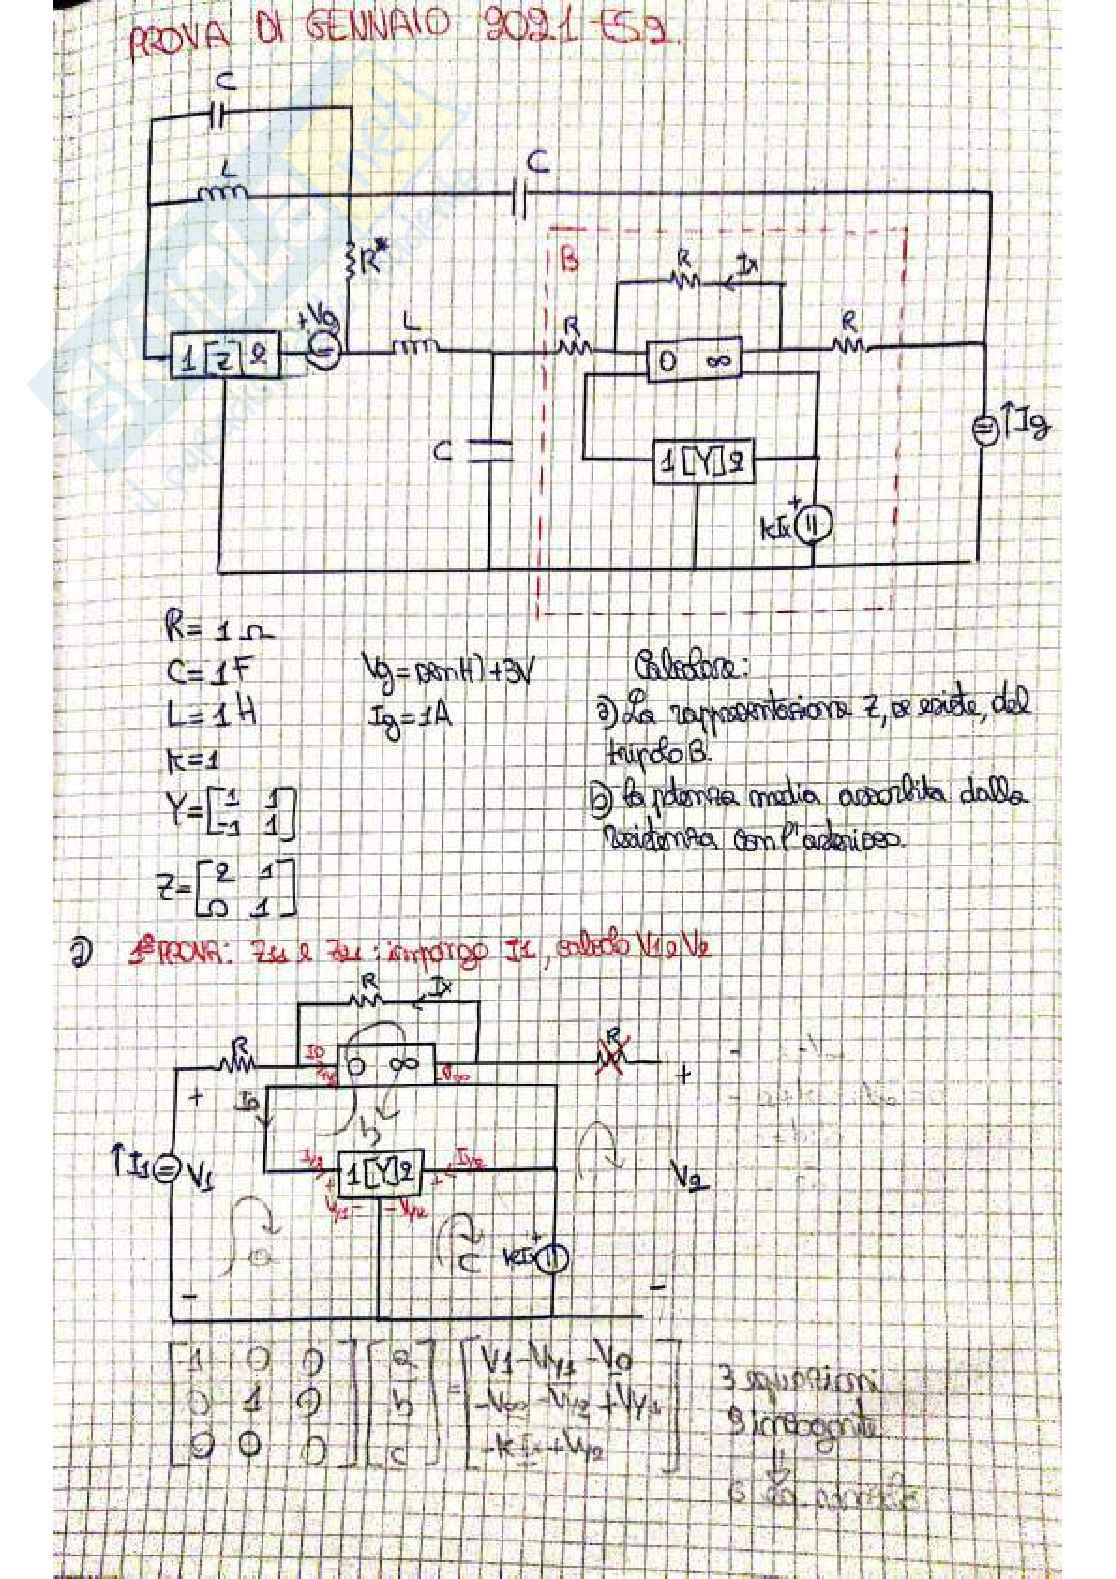 PROVA DI GENNAIO 2021 ES2
C
L
C
R*
B
R
Ix
+Vg
L
R
R
0 ∞
1 [Z] 2
C
1 [Y] 2
↑Ig
+
kIx
R= 1 Ω
C= 1F
L= 1 H
k=1
Y=[1 1
-1 1]
Z=[2 1
0 1]
Vg= sen(t)+3V
Ig=1A
Calcolare:
a) La rappresentazione Z, se esiste, del
tripolo B.
b) la potenza media assorbita dalla
resistenza con l'asterisco.
a) 1ª PROVA: Z11 e Z21: impongo I1, calcolo V1 e V2
R
Ix
R
I0
0 ∞
R
+
+
I0
b
↑I1
V1
Iy1
1 [Y] 2
Iy2
+
+
Vy1 - - Vy2
V2
a
c
kIx
+
-
-
[1 0 0] [a] = [V1-Vy1-V0]
[0 1 0] [b] [-V∞-Vy2+Vy1]
[0 0 0] [c] [-kIx+Vy2]
3 equazioni
9 incognite
⇓